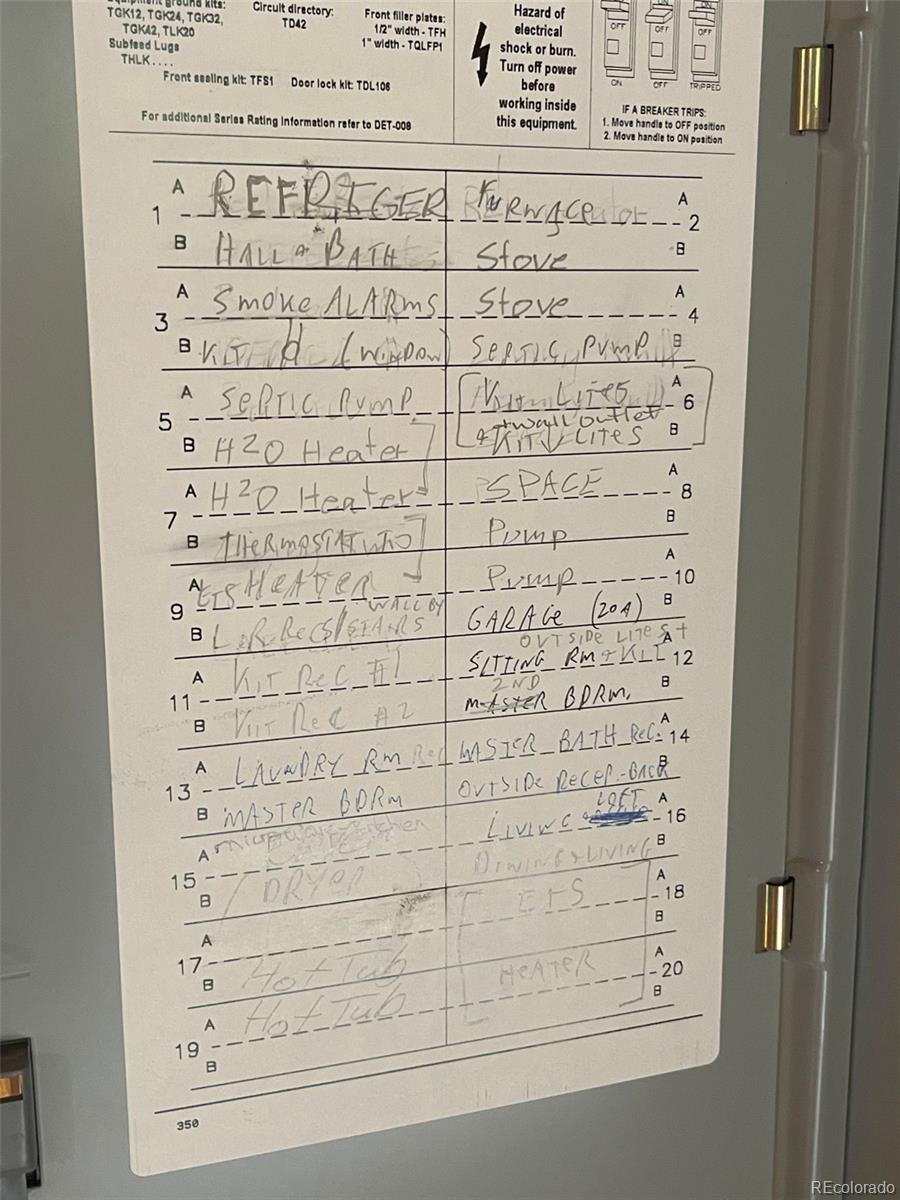 Equipment ground kits:
TGK12, TGK24, TGK32,
TGK42, TLK20
Subfeed Lugs
THLK....
Circuit directory:
TD42
Front filler plates:
1/2" width - TFH
1" width - TQLFP1
Front sealing kit: TFS1 Door lock kit: TDL106
For additional Series Rating Information refer to DET-008
Hazard of
electrical
shock or burn.
Turn off power
before
working inside
this equipment.
OFF OFF OFF
ON OFF TRIPPED
IF A BREAKER TRIPS:
1. Move handle to OFF position
2. Move handle to ON position
1 A REFRIGER FURNACE A 2
B HALL & BATH Stove B
3 A Smoke ALARMS Stove A 4
B KIT (WINDOW) SEPTIC PUMP B
5 A SEPTIC PUMP KIT LITES A 6
+ wall outlet
B H2O Heater & KIT LITES B
7 A H2O Heater SPACE A 8
B THERMOSTAT Pump B
9 A ETS HEATER Pump A 10
WALL BY
B L.R. Recs/STAIRS GARAGE (20A) B
OUTSIDE LITES +
11 A KIT REC #1 SITTING RM + KIT A 12
2ND
B KIT REC #2 MASTER BDRM. B
13 A LAUNDRY RM Rec MASTER BATH REC. A 14
B MASTER BDRM OUTSIDE RECEP.-BACK B
LOFT
15 A microwave-kitchen LIVING A 16
B DRYER DINING & LIVING B
17 A ETS A 18
B Hot Tub B
19 A Hot Tub HEATER A 20
B B
350
REcolorado